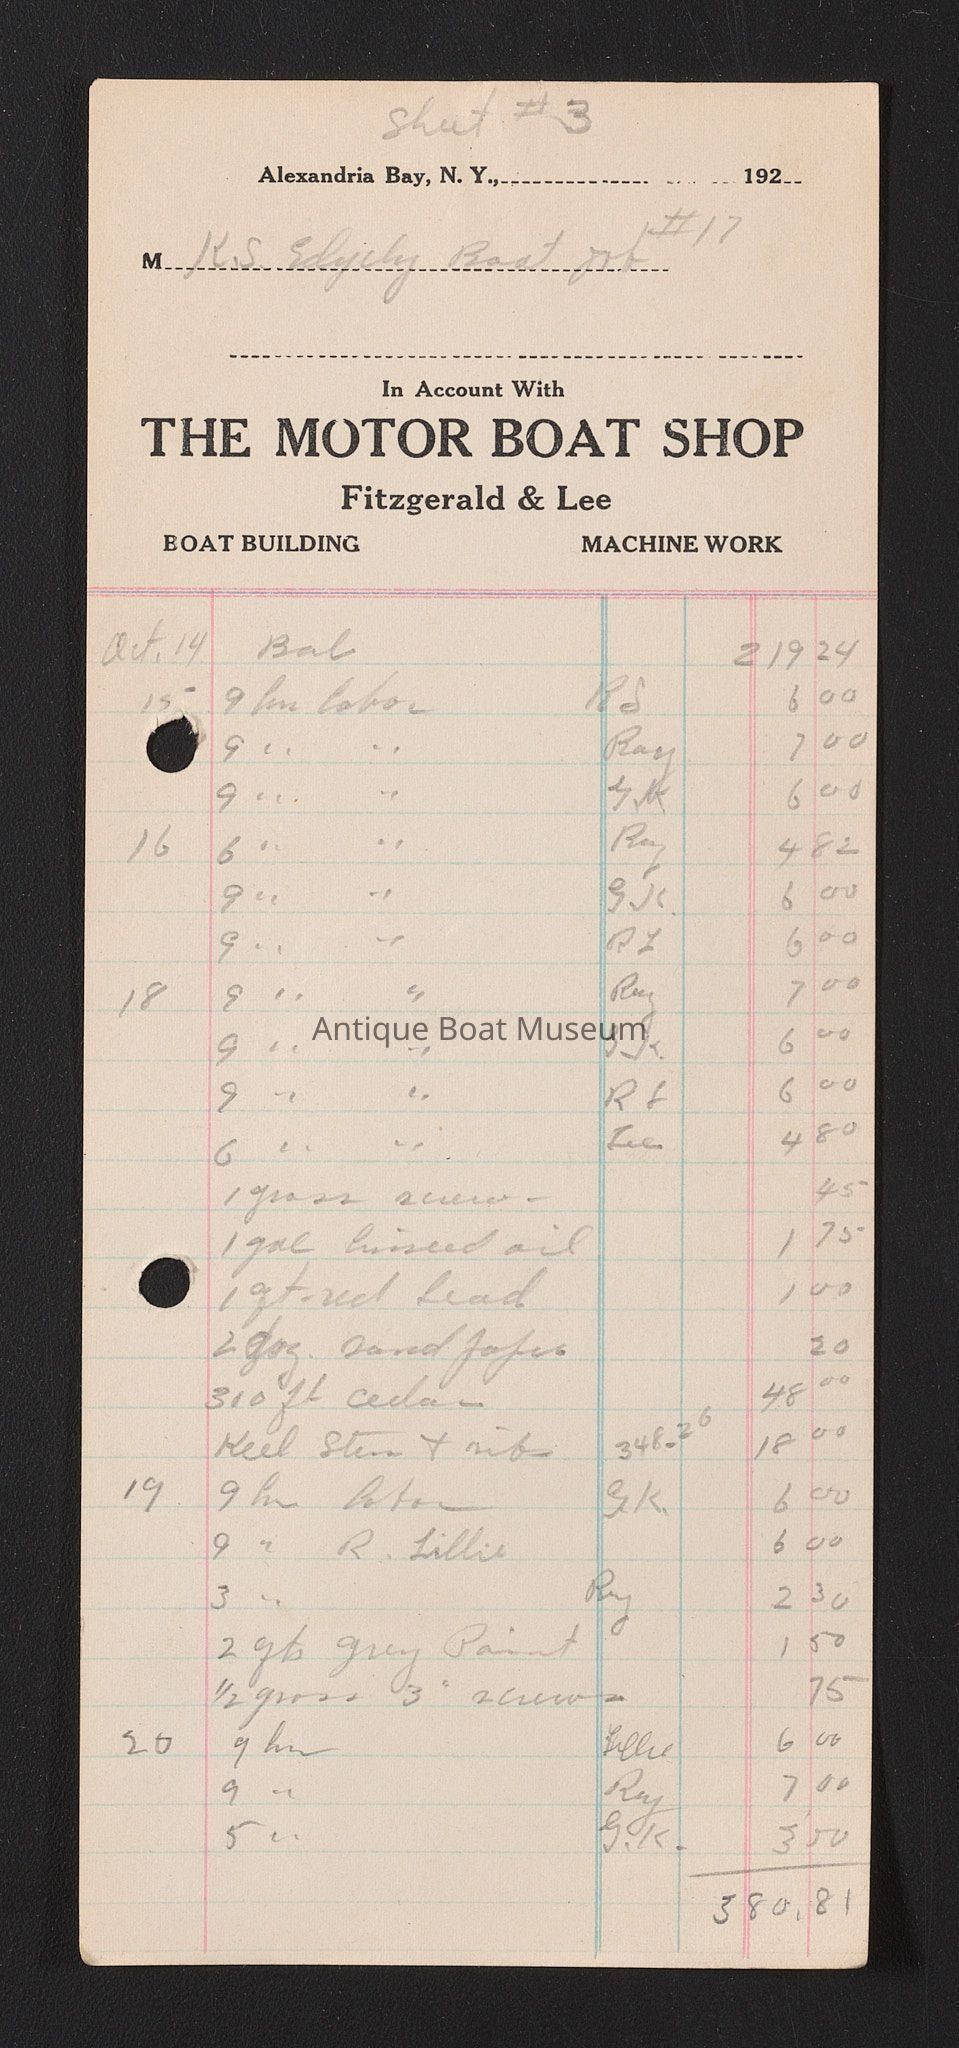 Sheet #3
Alexandria Bay, N. Y., 192
M K.S. Edgerly Boat Job #17
In Account With
THE MOTOR BOAT SHOP
Fitzgerald & Lee
BOAT BUILDING MACHINE WORK
Oct. 14 Bal 219 24
15 9 hrs labor RL 6 00
9 " " Ray 7 00
9 " " G.K 6 00
16 6 " " Ray 4 82
9 " " G.K. 6 00
9 " " RL 6 00
18 9 " " Ray 7 00
Antique Boat Museum
9 " " G.K. 6 00
9 " " RL 6 00
6 " " Lee 4 80
1 gross screws 45
1 gal linseed oil 1 75
1 qt. red Lead 1 00
2 doz. sand paper 20
310 ft cedar 48 00
Keel Stem + ribs 348.26 18 00
19 9 hrs labor G.K. 6 00
9 " R. Lillie 6 00
3 " Ray 2 30
2 qts grey Paint 1 50
1/2 gross 3" screws 75
20 9 hrs Lillie 6 00
9 " Ray 7 00
5 " G.K. 3 50
380.81